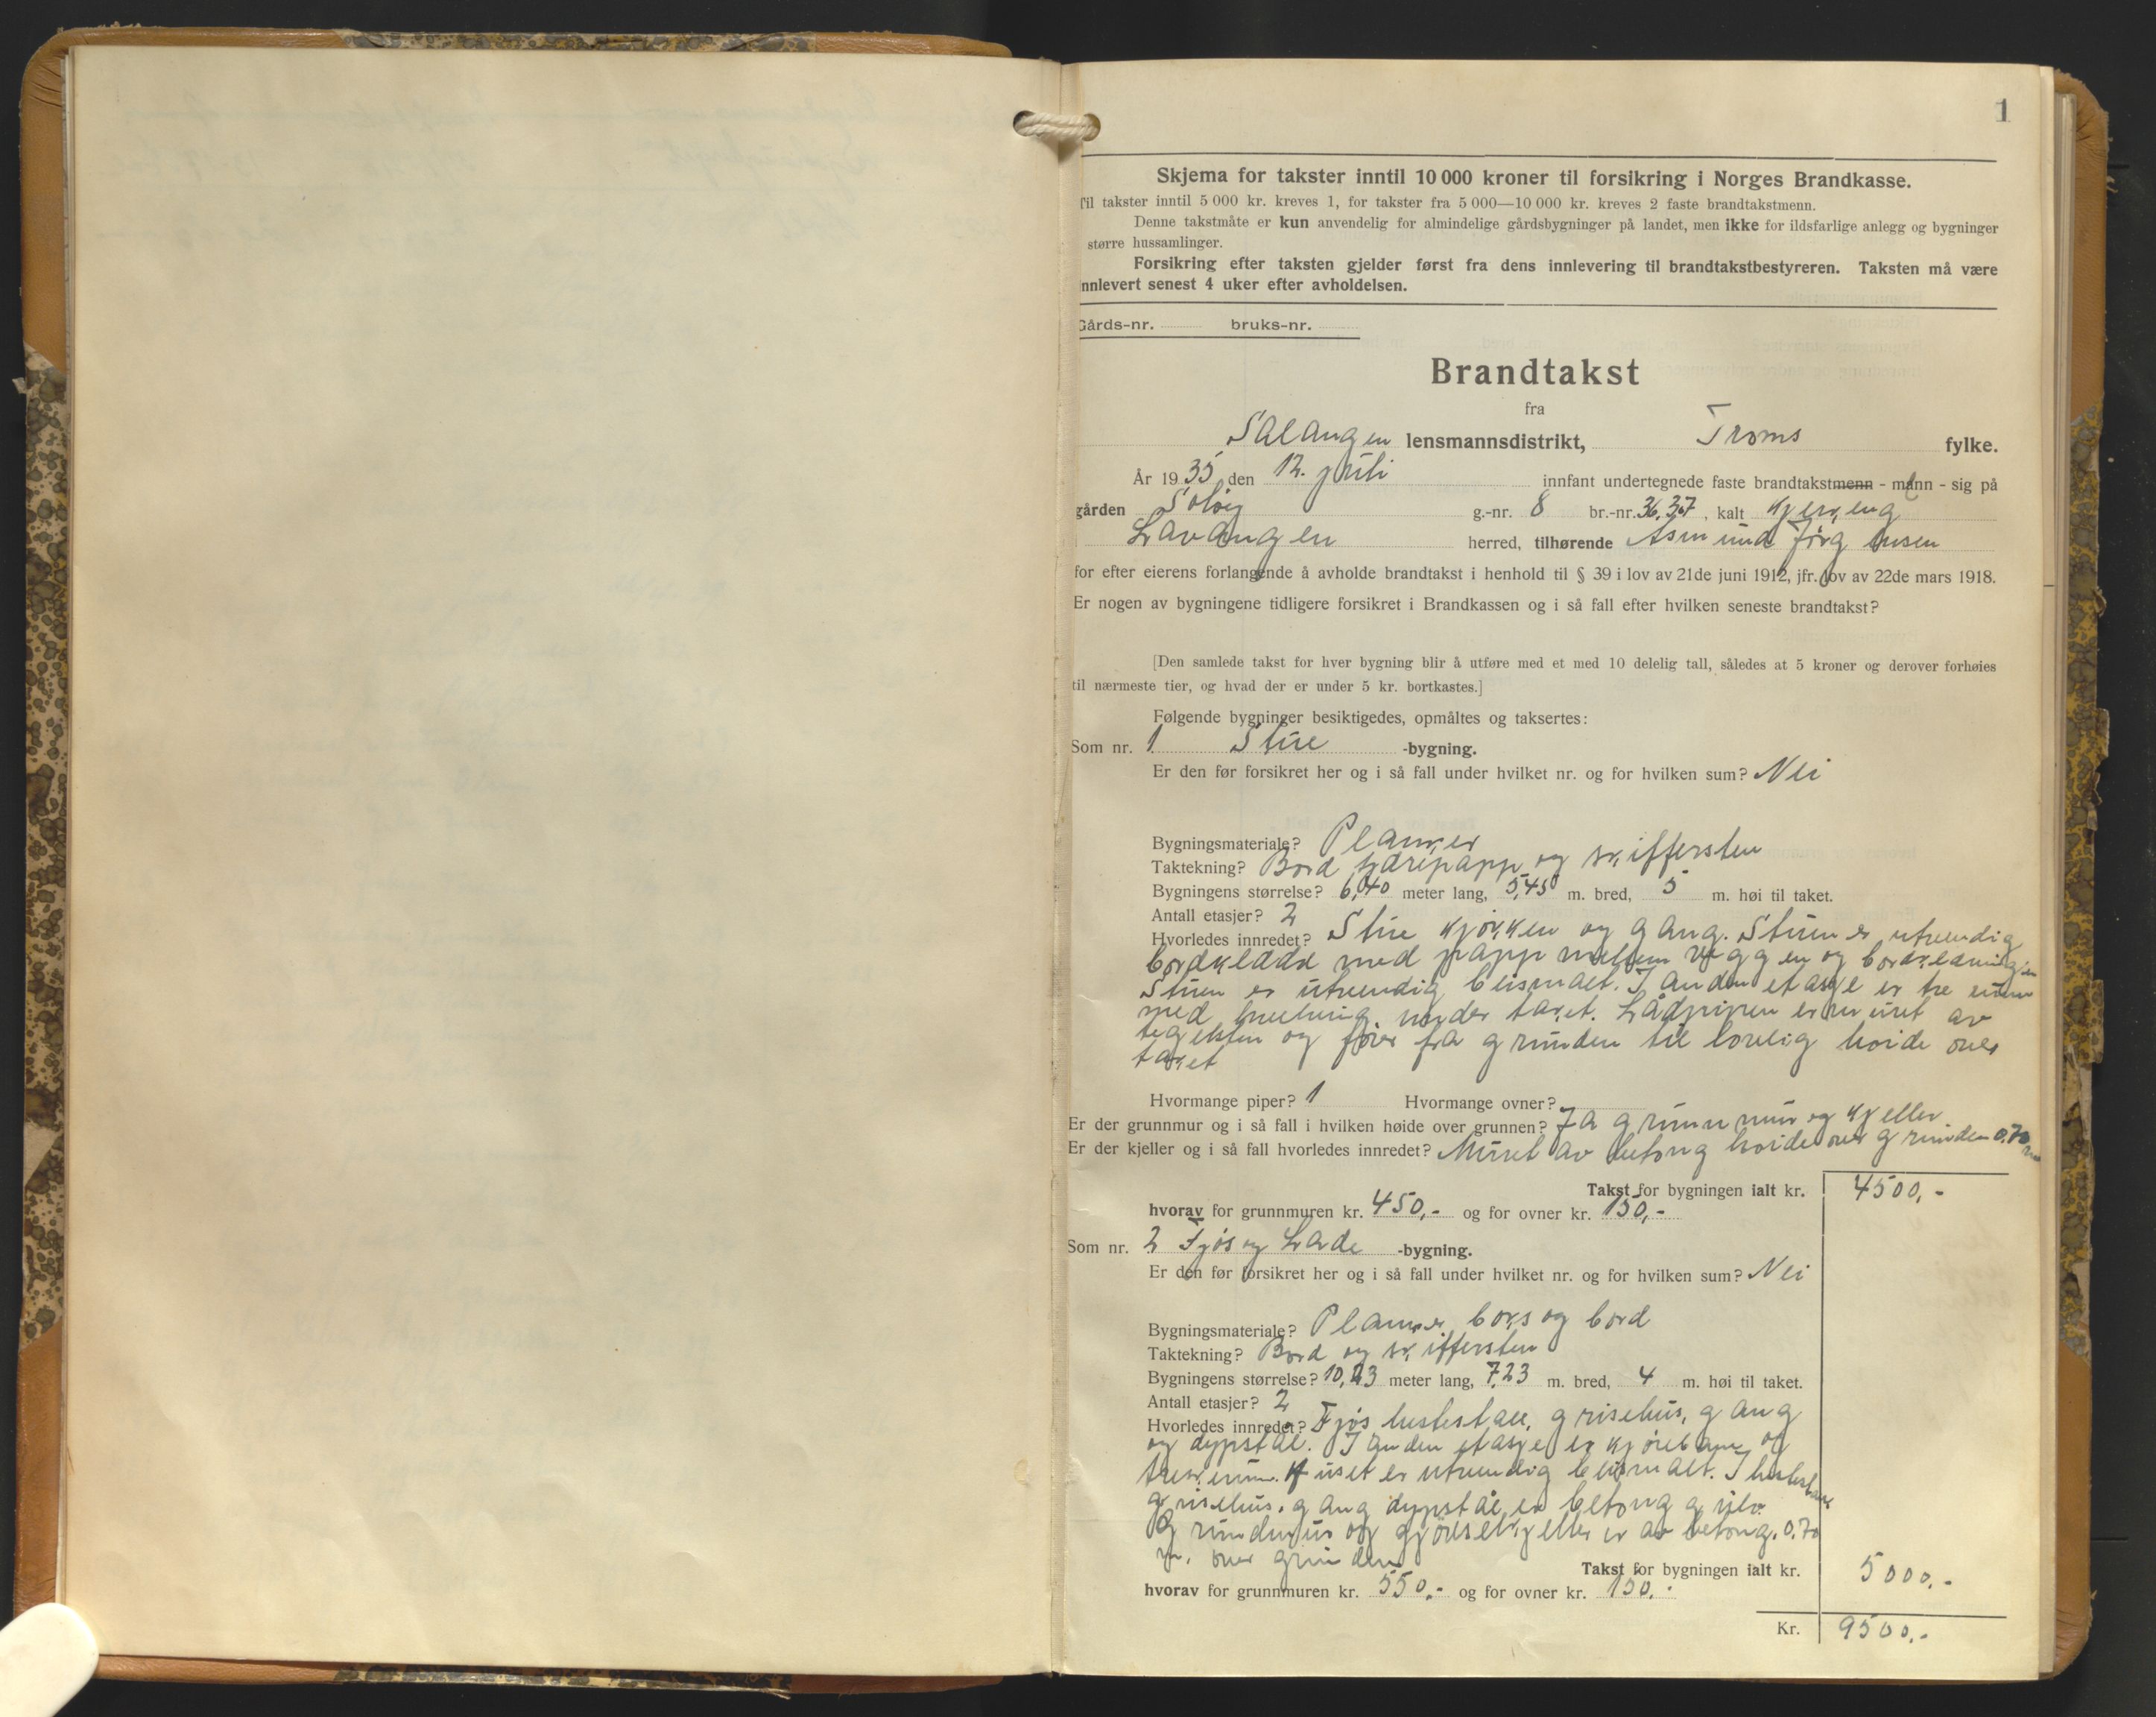 1
Skjema for takster inntil 10 000 kroner til forsikring i Norges Brandkasse.
Til takster inntil 5 000 kr. kreves 1, for takster fra 5 000—10 000 kr. kreves 2 faste brandtakstmenn.
Denne takstmåte er kun anvendelig for almindelige gårdsbygninger på landet, men ikke for ildsfarlige anlegg og bygninger
større hussamlinger.
Forsikring efter taksten gjelder først fra dens innlevering til brandtakstbestyreren. Taksten må være
nnlevert senest 4 uker efter avholdelsen.
Gårds-nr. bruks-nr.
Brandtakst
fra
Salangen lensmannsdistrikt, Troms fylke.
År 1935 den 12. juli innfant undertegnede faste brandtakstmenn - mann - sig på
gården Soløy g.-nr. 8 br.-nr. 36, 37, kalt Kjerreng
Lavangen herred, tilhørende Asmund Jørgensen
for efter eierens forlangende å avholde brandtakst i henhold til § 39 i lov av 21de juni 1912, jfr. lov av 22de mars 1918.
Er nogen av bygningene tidligere forsikret i Brandkassen og i så fall efter hvilken seneste brandtakst?
[Den samlede takst for hver bygning blir å utføre med et med 10 delelig tall, således at 5 kroner og derover forhøies
til nærmeste tier, og hvad der er under 5 kr. bortkastes.]
Følgende bygninger besiktigedes, opmåltes og taksertes:
Som nr. 1 Stue -bygning.
Er den før forsikret her og i så fall under hvilket nr. og for hvilken sum? Nei
Bygningsmateriale? Planker
Taktekning? Bord tjærepapp og skiffersten
Bygningens størrelse? 6,40 meter lang, 5,45 m. bred, 5 m. høi til taket.
Antall etasjer? 2
Hvorledes innredet? Stue kjøkken og gang. Stuen er utvendig
bordkledd med papp mellem veggen og bordkledningen
Stuen er utvendig beismalt. I anden etasje er tre rum
med hvelving under taket. Lådpipen er muret av
teglsten og fører fra grunden til lovlig høide over
taket
Hvormange piper? 1 Hvormange ovner?
Er der grunnmur og i så fall i hvilken høide over grunnen? Ja grunnmur og kjeller
Er der kjeller og i så fall hvorledes innredet? Muret av betong høide over grunden 0,70 m
Takst for bygningen ialt kr. 4500,-
hvorav for grunnmuren kr. 450,- og for ovner kr. 150,-
Som nr. 2 Fjøs og Lade -bygning.
Er den før forsikret her og i så fall under hvilket nr. og for hvilken sum? Nei
Bygningsmateriale? Planker boks og bord
Taktekning? Bord og skiffersten
Bygningens størrelse? 10,23 meter lang, 7,23 m. bred, 4 m. høi til taket.
Antall etasjer? 2
Hvorledes innredet? Fjøs hestestall, grisehus, gang
og dypstål. I anden etasje er kjørebane og
treskerum. Huset er utvendig beismalt. I hestestall
grisehus, gang dypstål er betong gulv.
Grundmur og gjødselkjeller er av betong. 0,70
m. over grunden
Takst for bygningen ialt kr. 5000,-
hvorav for grunnmuren kr. 550,- og for ovner kr. 150,-
Kr. 9500,-